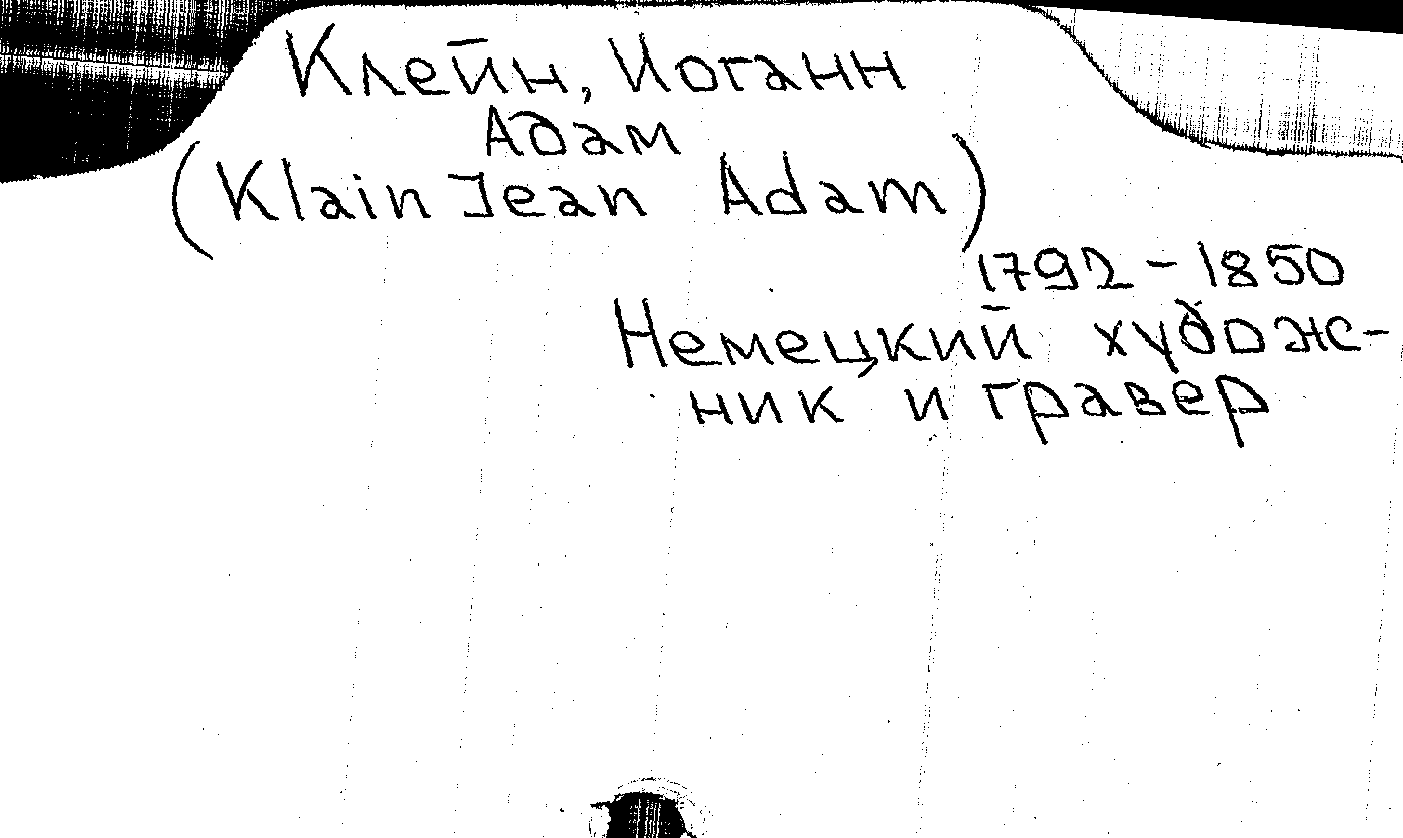 Клейн, Иоганн
Адам
(Klain Jean Adam)
1792-1850
Немецкий худож-
ник и гравер